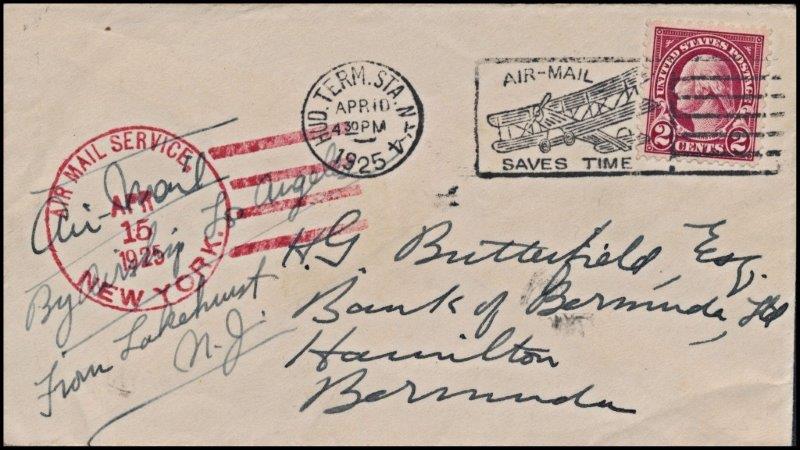 HUD. TERM. STA. N.Y. 4
APR 10
4 30 PM
1925
AIR-MAIL
SAVES TIME
UNITED STATES POSTAGE
2 CENTS 2
AIR MAIL SERVICE,
APR
15
1925
NEW YORK.
Air-Mail
By airship Los Angeles
From Lakehurst
N.J.
H.G. Butterfield, Esq.
Bank of Bermuda, Ltd
Hamilton
Bermuda